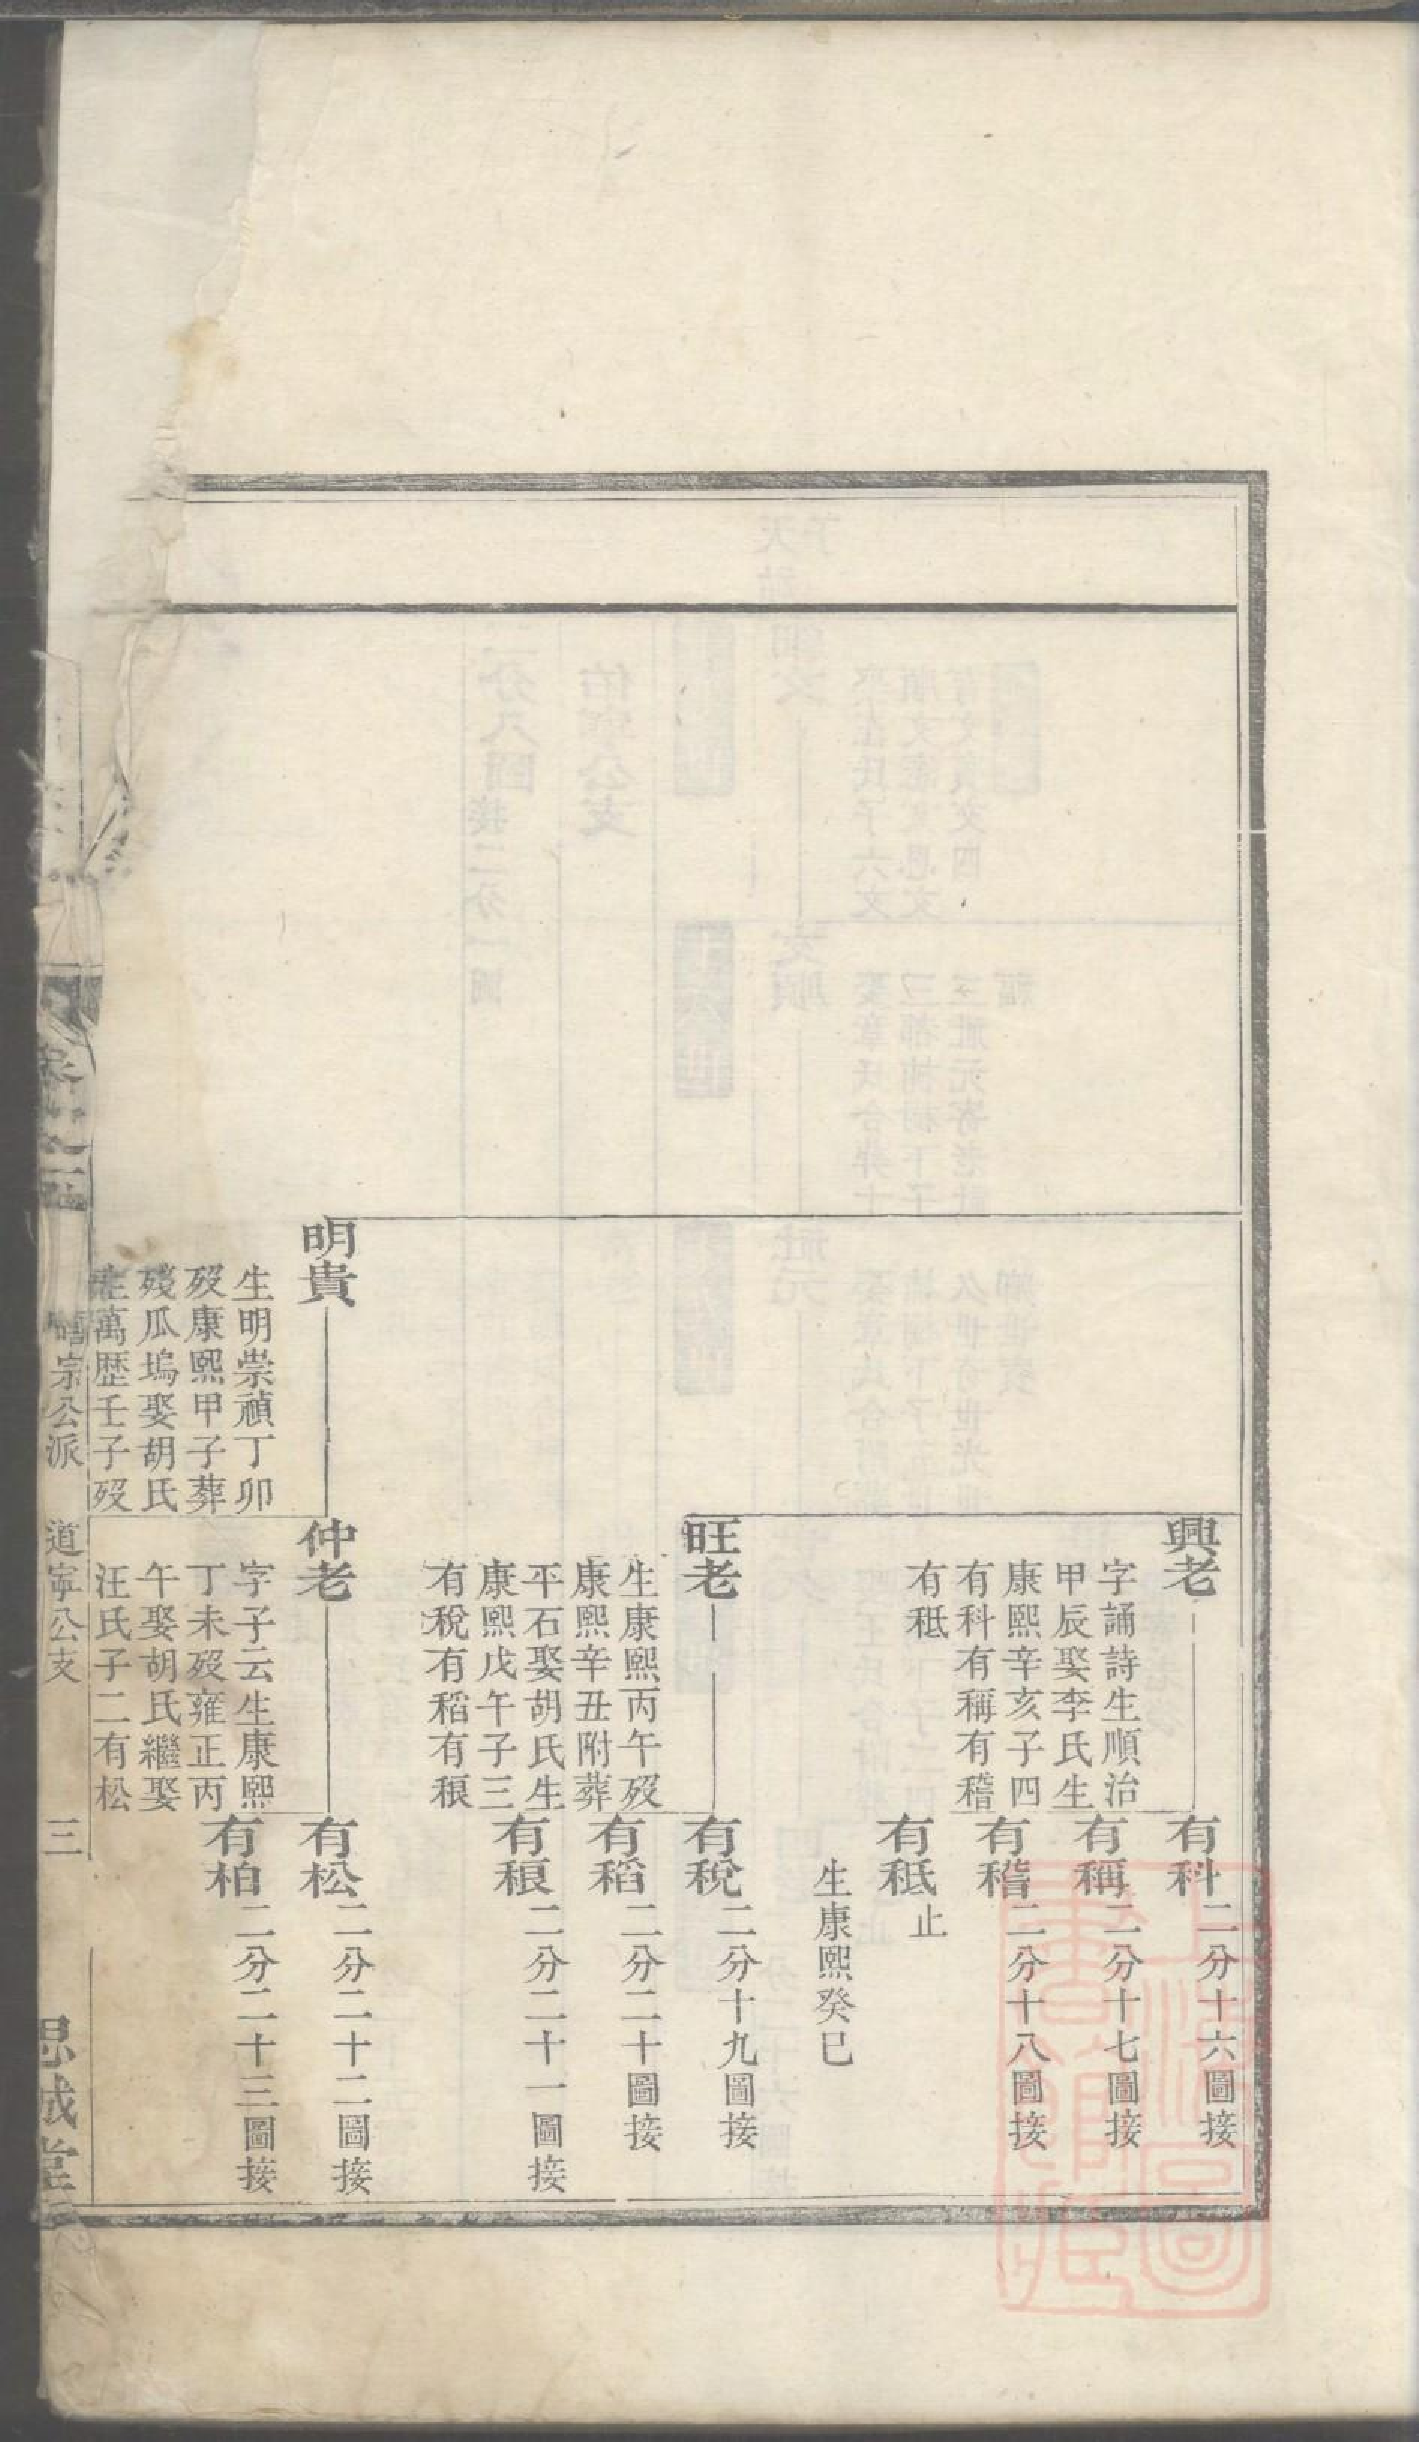 興老
字誦詩生順治
甲辰娶李氏生
康熙辛亥子四
有科有稱有稽
有秪
有科
二分十六圖接
有稱
二分十七圖接
有稽
二分十八圖接
有秪
止
生康熙癸巳
旺老
生康熙丙午歿
康熙辛丑附葬
平石娶胡氏生
康熙戊午子三
有稅有稻有稂
有稅
二分十九圖接
有稻
二分二十圖接
有稂
二分二十一圖接
明貴
生明崇禎丁卯
歿康熙甲子葬
殘瓜塢娶胡氏
生萬歷壬子歿
仲老
字子云生康熙
丁未歿雍正丙
午娶胡氏繼娶
汪氏子二有松
有松
二分二十二圖接
有柏
二分二十三圖接
卷六之二
宗公派 道寧公支
三
思誠堂
上海圖
書館藏